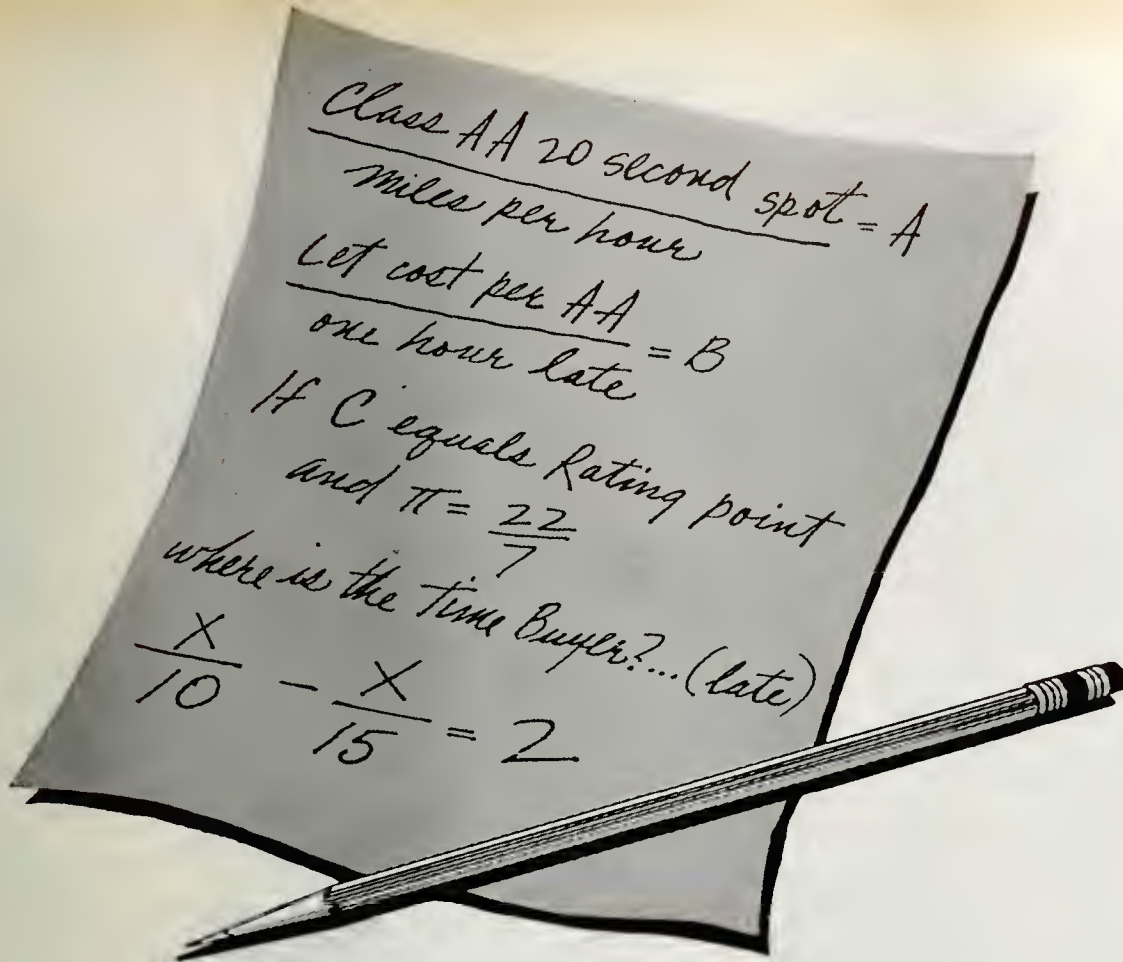 Class AA 20 second spot = A
miles per hour
Let cost per AA = B
one hour late
If C equals Rating point
and π = 22/7
where is the Time Buyer?... (late)
X/10 - X/15 = 2